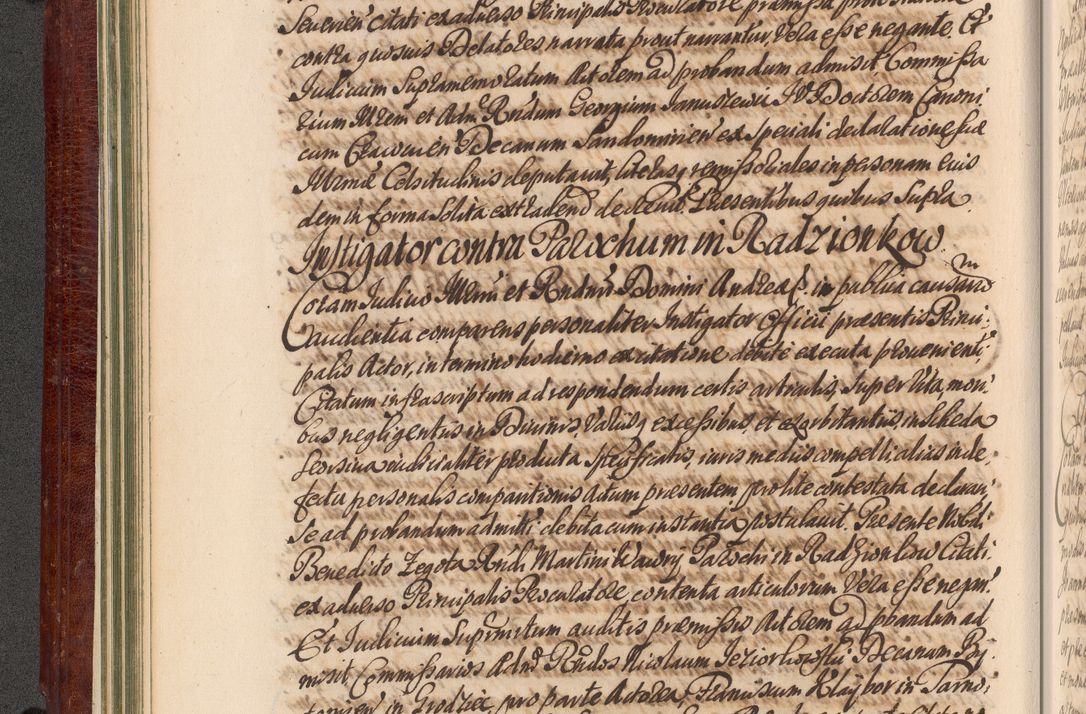 Severien̄ citati ex adverso Principalis Procuratore præmissa prout
contra quosvis Delatores, narrata prout narrantur, Vera esse negante. Et
Judicium Supramemoratum Actorem ad probandum admisit, Commissa
rium Illrem et Adm̄ Rn̄dum Georgium Januszewic JV Doctorem Canoni
cum Cracovien̄ Decanum Sandomirien̄ ex speciali declaratione suæ
Illrmæ Celsitudinis deputavit, literas remissoriales in personam eius
dem in forma solita extradend decrevit. Præsentibus quibus Supra.
Instigator contra Parochum in Radzionkow
Coram Judicio Illrmi et Rn̄dmi Domini Andreæ in publica causarum
audientia comparens personaliter Instigator Officii præsentis Princi
palis Actor, in termino hodierno ex citatione debite executa provenienti,
Citatum infrascriptum ad respondendum certis articulis, super Vita, mori
bus negligentiis in Divinis, Variisq excessibus, et exorbitantiis, in scheda
seorsiva iudicialiter producta specificatis, iuris mediis compelli alias in de
fectu personalis comparitionis Actum præsentem pro lite contestata declarari,
se ad probandum admitti debita cum instantia postulavit. Præsente Nobili
Benedicto Zegota Rn̄di Martini Parochi in Radzionkow Citati
ex adverso Principalis Procuratore contenta articulorum Vera esse negan̄.
Et Judicium Suprmitum auditis præmissis Actorem ad probandum ad
misit, Commissarios Adm̄ Rn̄dos Nicolaum Jeziorkowski Decanum By
tomien̄ in Grodziec, pro parte Actorea, Franciscum Klaybor in Tarno